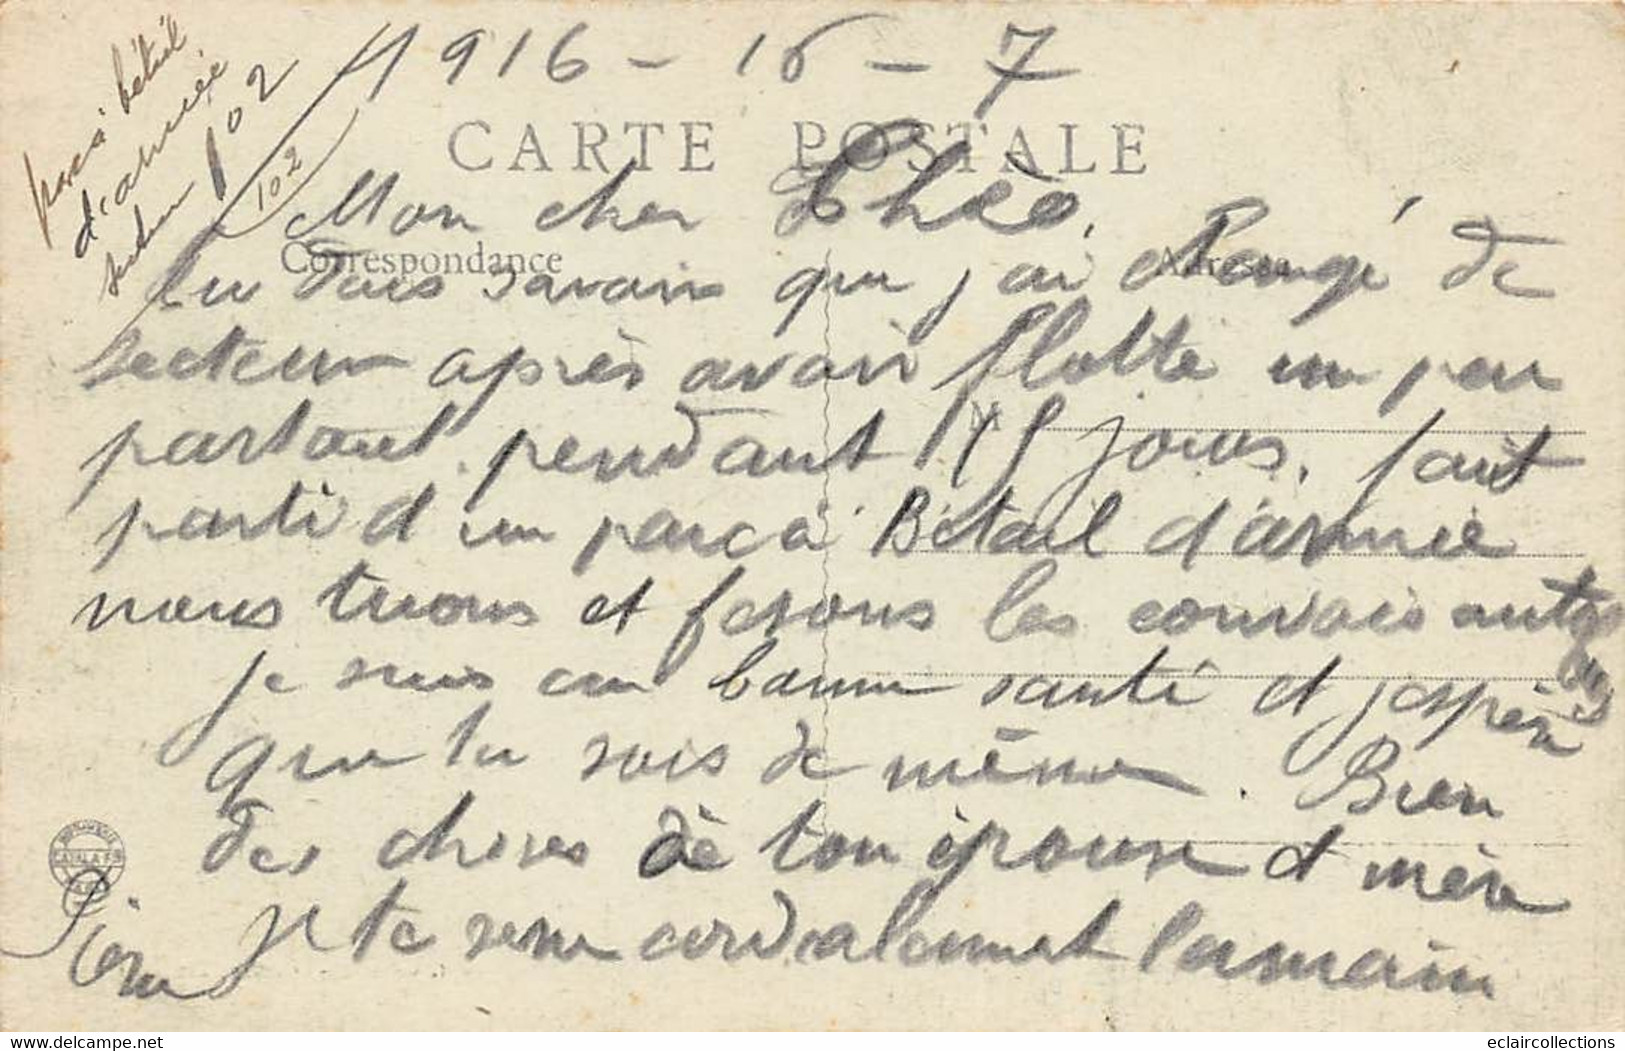 1916 - 16 - 7
parc à bétail
d'armée
secteur 102
102
CARTE POSTALE
Correspondance
Mon cher Théo,
tu dois savoir que j'ai changé de
secteur après avoir flotté un peu
partout pendant 15 jours. fait
parti d un parc à Bétail d'armée
nous tuons et fesons les convois autos
je suis en bonne santé et j'espère
que tu sois de même. Bien
des choses à ton épouse et mère
je te serre cordialement la main
Pierre
M
eclaircollections